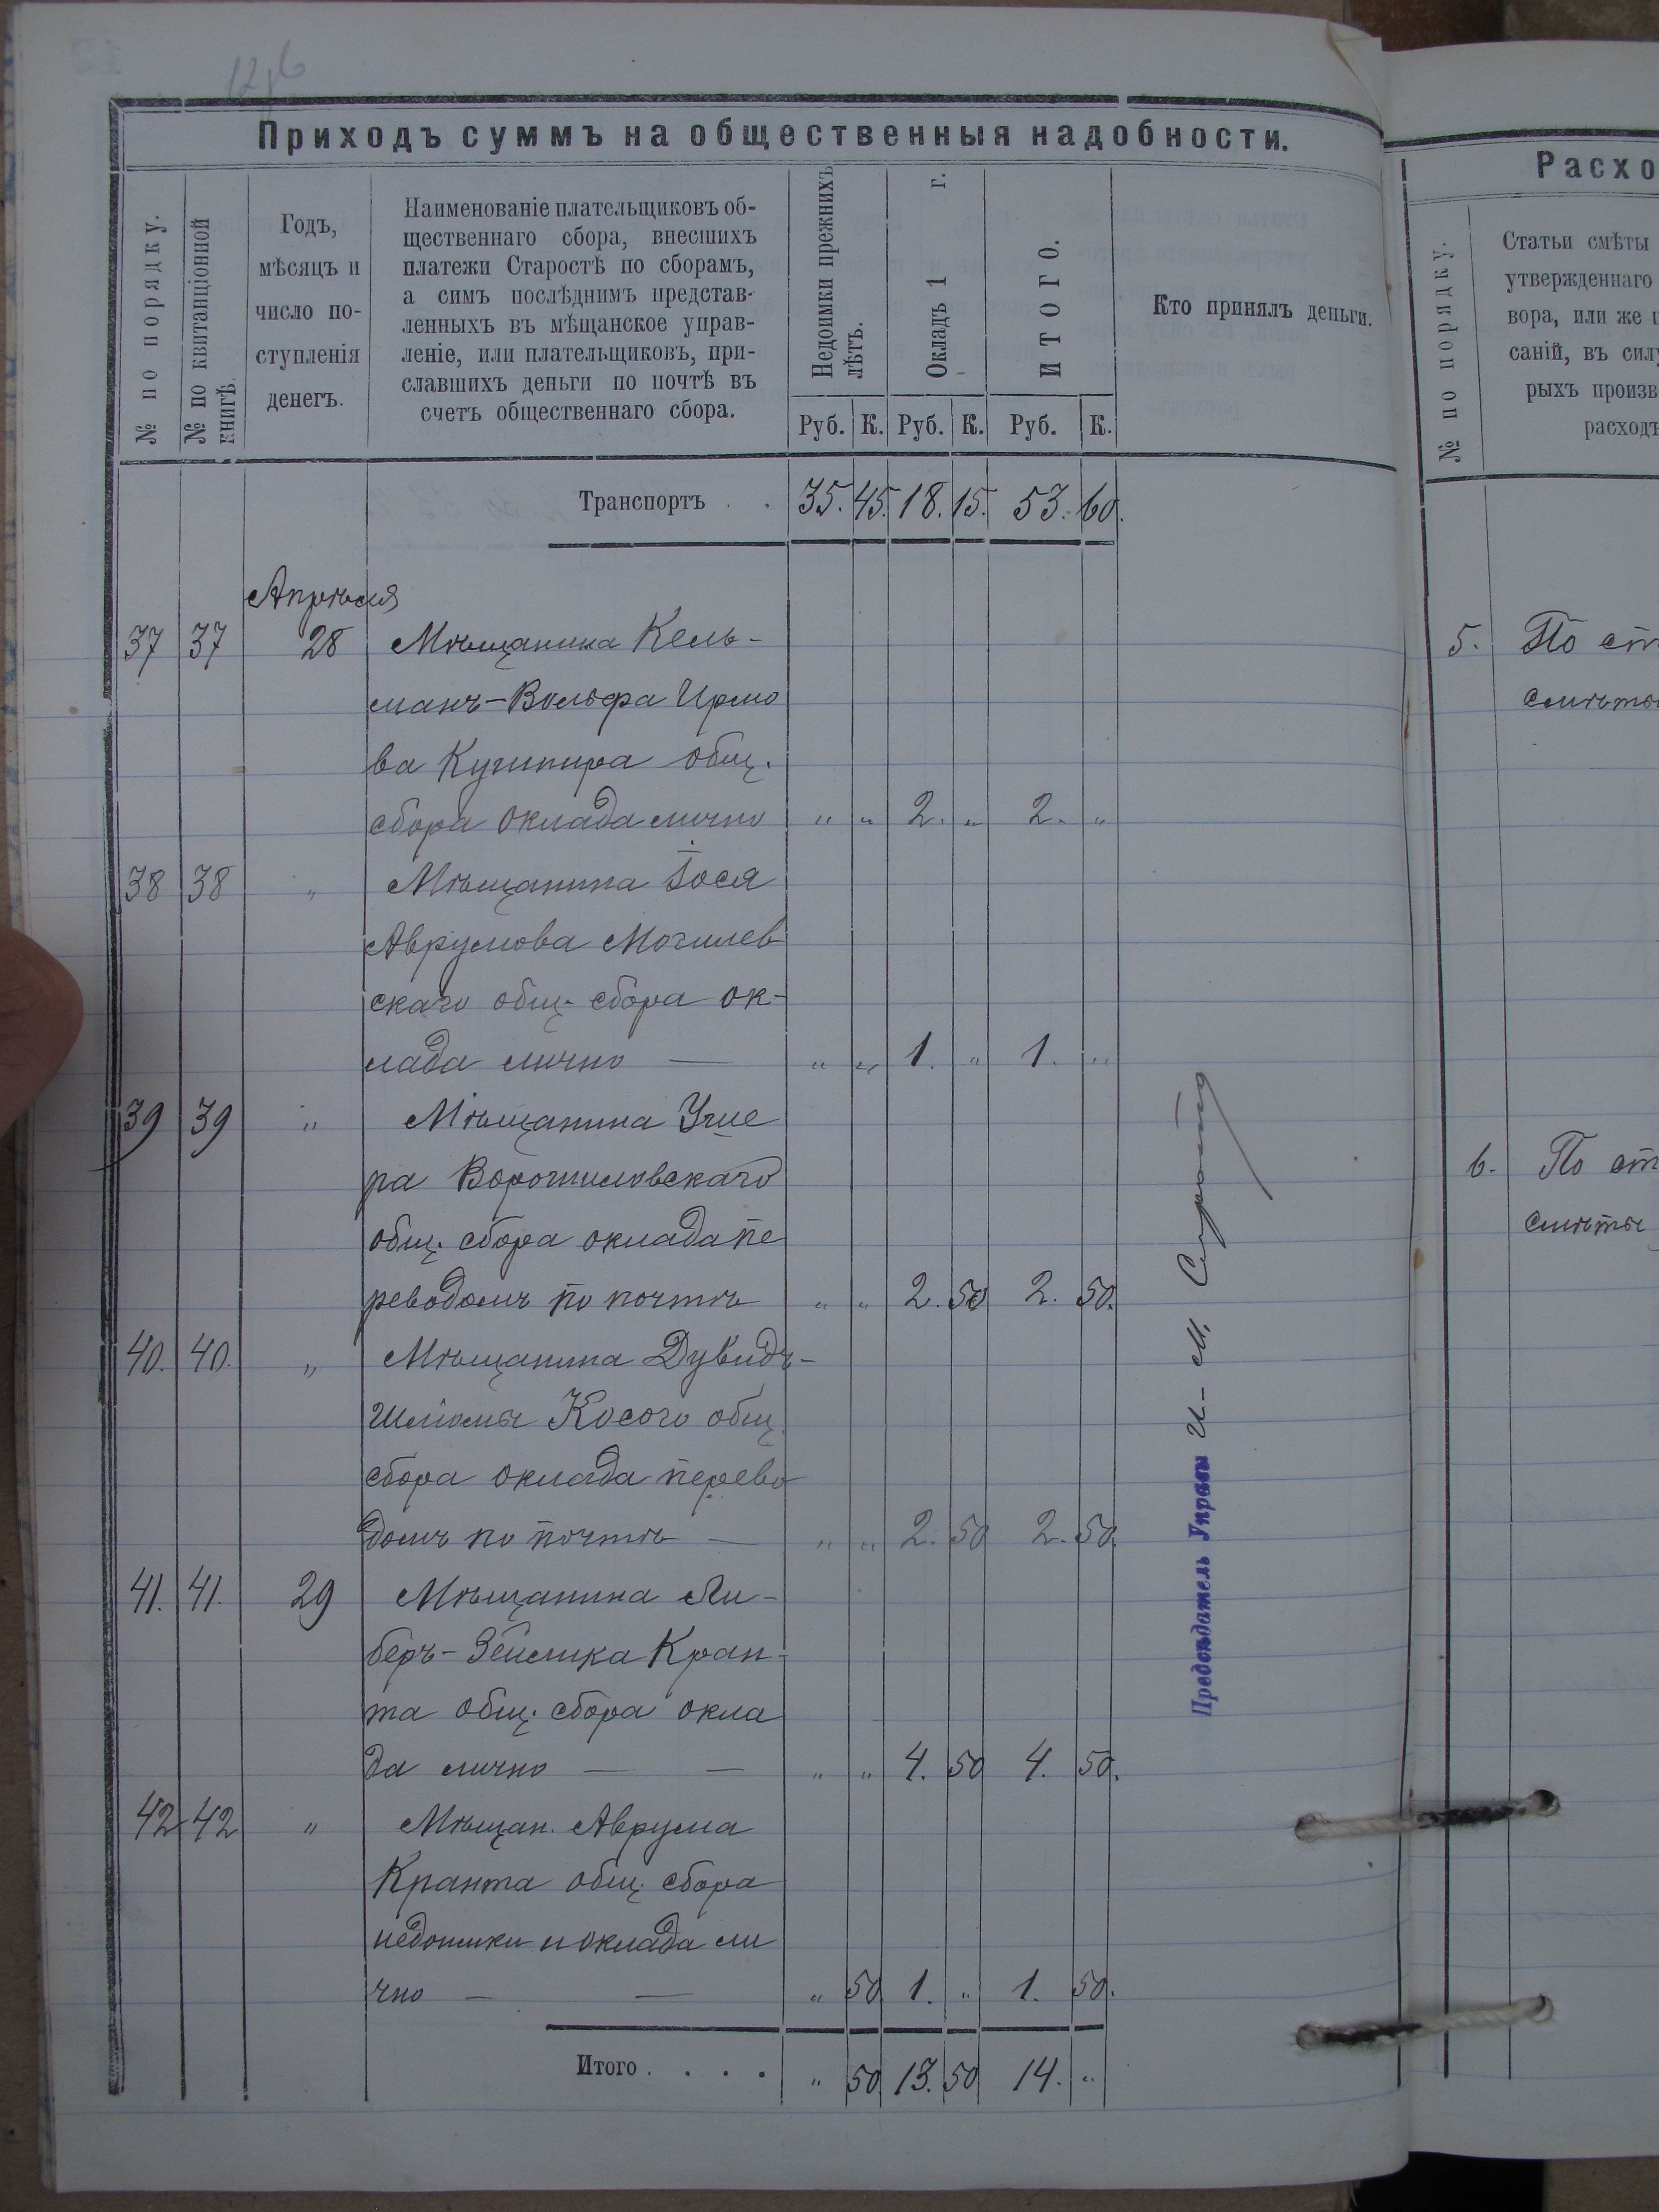 12 об
Приходъ суммъ на общественныя надобности.
№ по порядку.
№ по квитанціонной книгѣ.
Годъ, мѣсяцъ и число поступленія денегъ.
Наименованіе плательщиковъ об-
щественнаго сбора, внесшихъ
платежи Старостѣ по сборамъ,
а симъ послѣднимъ представ-
ленныхъ въ мѣщанское управ-
леніе, или плательщиковъ, при-
славшихъ деньги по почтѣ въ
счетъ общественнаго сбора.
Недоимки прежнихъ лѣтъ.
Окладъ 1 г.
ИТОГО.
Кто принялъ деньги.
Руб. К. Руб. К. Руб. К.
Транспортъ . . 35. 45. 18. 15. 53. 60.
Апрѣля
37 37 28 Мѣщанина Кель-
манъ-Вольфа Ирмо
ва Кушнира общ.
сбора оклада лично " " 2. " 2. "
38 38 " Мѣщанина Іося
Аврумова Могилев
скаго общ. сбора ок-
лада лично — " " 1. " 1. "
39 39 " Мѣщанина Уше
ра Ворошиловскаго
общ. сбора оклада пе
реводомъ по почтѣ " " 2. 50 2. 50.
40. 40. " Мѣщанина Дувидъ-
Шліомы Косого общ.
сбора оклада перево
домъ по почтѣ — " " 2. 50 2. 50.
41. 41. 29 Мѣщанина Ли-
беръ-Зейлика Кран-
та общ. сбора окла
да лично — — " " 4. 50 4. 50.
42 42 " Мѣщан. Аврума
Кранта общ. сбора
недоимки и оклада ли
чно — — " 50 1. " 1. 50.
Итого . . . . " 50 13. 50 14. "
Предсѣдатель Управы И- М.
Расхо
№ по порядку.
Статьи смѣты
утвержденнаго
вора, или же
саній, въ силу
рыхъ произв
расходъ
5. По ст
смѣты
6. По ст
смѣты